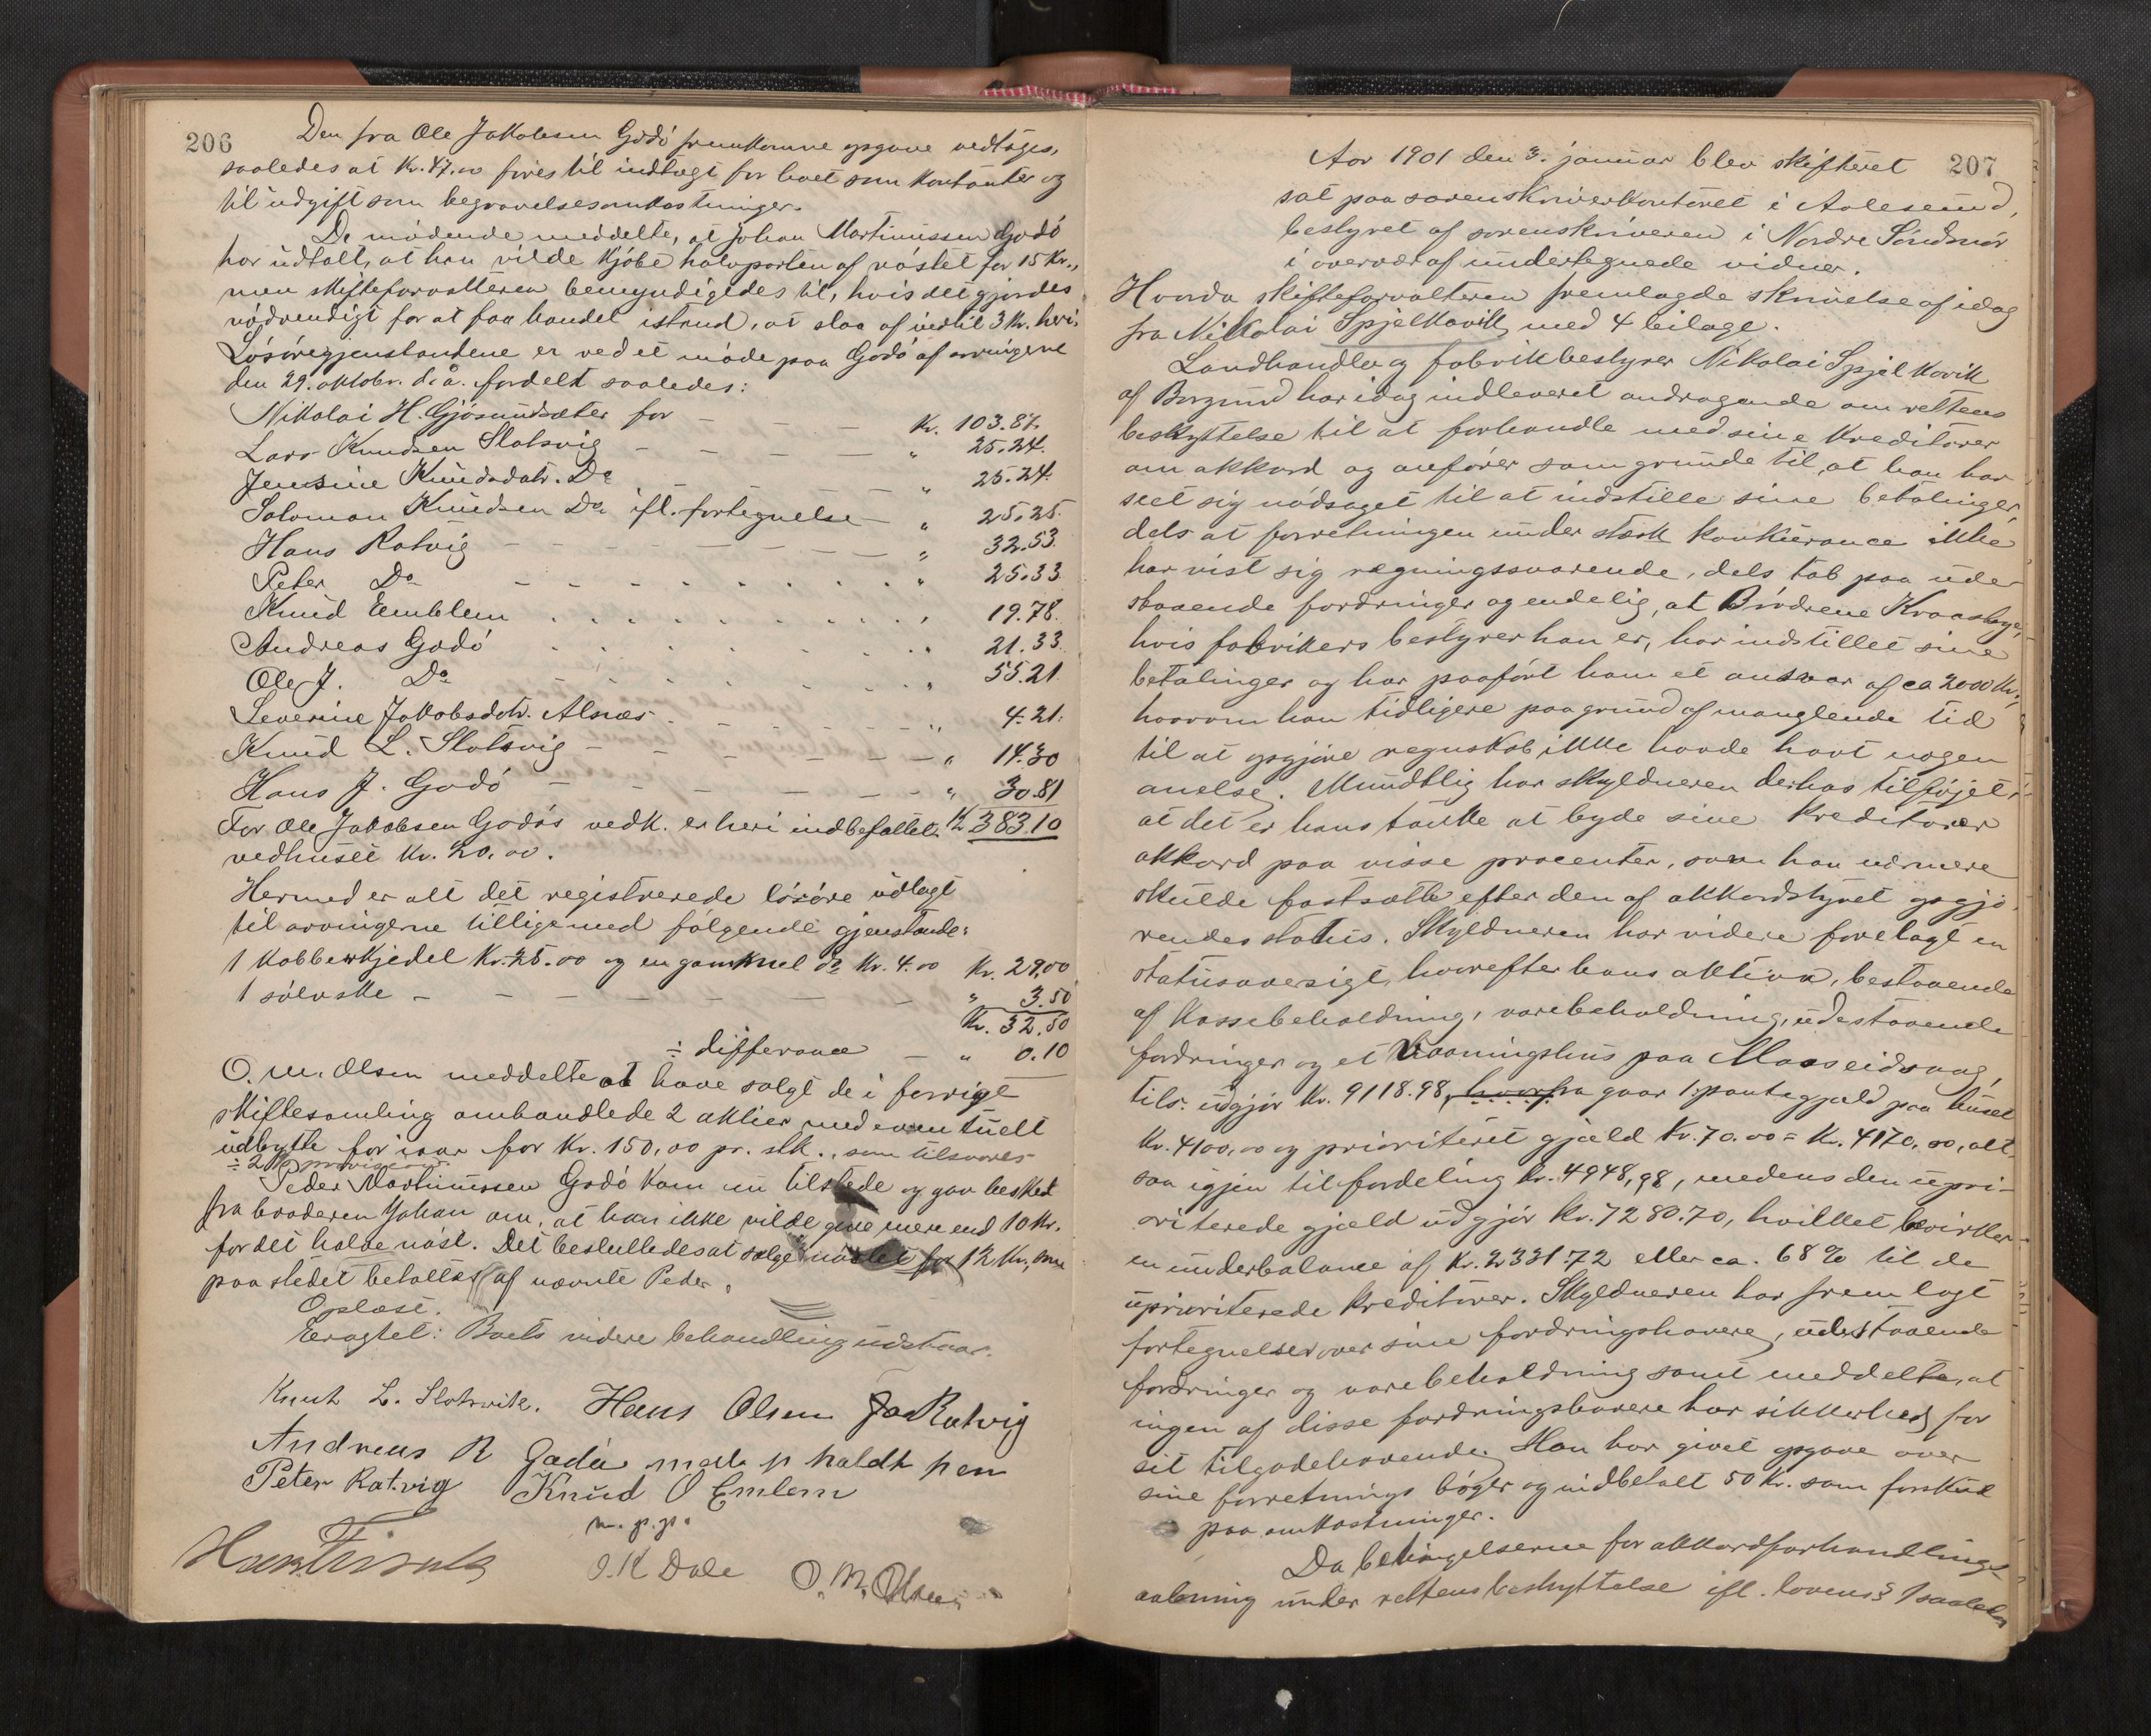 206
Den fra Ole Jakobsen Godö fremkomne opgave vedtoges,
saaledes at Kr. 47.00 föres til indtægt for boet som kontanter og
til udgift som begravelsesomkostninger.
De mödende meddelte, at Johan Martinussen Godö
har udtalt, at han vilde kjöbe halvparten af nöstet for 15 Kr.,
men skifteforvalteren bemyndigedes til, hvis det gjordes
nödvendigt for at faa handel istand, at slaa af indtil 3 Kr. heri.
Lösöregjenstandene er ved et möde paa Godö af arvingerne
den 29. oktobr. d. å. fordelt saaledes:
Nikolai H. Gjösundsæter for – – – Kr. 103.87.
Lars Knudsen Slotsvig – – – – „ 25.24.
Jensine Knudsdatr. Do – – – „ 25.24.
Salomon Knudsen Do ifl. fortegnelse – „ 25.25
Hans Rotvig – – – – – – „ 32.53.
Peter Do – . . . . . . . „ 25.33
Knud Emblem . . . . . . . „ 19.78.
Andreas Godö . . . . . . . „ 21.33
Ole J. Do . . . . . . . „ 55.21
Severine Jakobsdtr. Alnæs . – – – „ 4.21.
Knud L. Slotsvig – – – – – „ 14.30
Hans J. Godö – – – – – – „ 30.81
For Ole Jakobsen Godös vedk. er heri indbefattet Kr 383.10
vedhuset Kr. 20,00.
Hermed er alt det registrerede lösöre udlagt
til arvingerne tilligemed fölgende gjenstande:
1 kobberkjedel Kr. 25.00 og en gammel do Kr. 4.00 Kr. 29,00
1 sölvske – – – – – – „ 3.50
Kr. 32.50
÷ differance – „ 0.10
O. M. Olsen meddelte at have solgt de i forrige
skiftesamling omhandlede 2 aktier med eventuelt
udbytte for iaar for Kr. 150,00 pr. stk., som tilsvares
÷ 2 % provision.
Peder Martinussen Godö kom nu tilstede og gav besked
fra broderen Johan om, at han ikke vilde give mere end 10 Kr.
for det halve nöst. Det besluttedes at sælge nöstet for 12 Kr., som
paa stedet betaltes af nævnte Peder.
Oplæst.
Eragtet: Boets videre behandling udstaar.
Knut L. Slotsvik. Hans Olsen Jo Rotvig
Andreas R Godö med p holdt pen
Peter Ratvig Knud O Emlem
m. p. p.
O. K Dale O. M. Olsen
207
Aar 1901 den 3. januar blev skifteret
sat paa sorenskriverkontoret i Aalesund,
bestyret af sorenskriveren i Nordre Söndmör
i overvær af undertegnede vidner.
Hvorda skifteforvalteren fremlagde skrivelse af idag
fra Nikolai Spjelkavik med 4 bilage.
Landhandler og fabrikbestyrer Nikolai Spjelkavik
af Borgund har idag indleveret andragende om rettens
beskyttelse til at forhandle med sine kreditorer
om akkord og anförer som grunde til, at han har
seet sig nödsaget til at indstille sine betalinger,
dels at forretningen under stærk konkurance ikke
har vist sig regningssvarende, dels tab paa ude-
staaende fordringer og endelig, at Brödrene Kraastage,
hvis fabrikers bestyrer han er, har indstillet sine
betalinger og har paafört ham et ansvar af ca 2000 Kr.,
hvorom han tidligere paa grund af manglende tid
til at opgjöre regnskab ikke havde havt nogen
anelse. Mundtlig har skyldneren derhos tilföjet,
at det er hans tanke at byde sine kreditorer
akkord paa visse procenter, som han nærmere
skulde fastsætte efter den af akkordstyret opgjö-
rendes status. Skyldneren har videre forelagt en
statusoversigt, hvorefter hans aktiva, bestaaende
af kassebeholdning, varebeholdning, udestaaende
fordringer og et vaaningshus paa Masseidvaag,
tils. udgjör Kr. 9118.98, hvorfra gaar 1. pantegjæld paa huset
Kr. 4100,00 og prioriteret gjæld Kr. 70.00 = Kr. 4170,00, alt-
saa igjen til fordeling Kr. 4948,98, medens den upri-
oriterede gjæld udgjör Kr. 7280.70, hvilket bevirker
en underbalance af Kr. 2331.72 eller ca. 68 % til de
uprioriterede kreditorer. Skyldneren har fremlagt
fortegnelser over sine fordringshavere, udestaaende
fordringer og varebeholdning samt meddelte, at
ingen af disse fordringshavere har sikkerhed for
sit tilgodehavende. Han har givet opgave over
sine forretnings böger og indbetalt 50 Kr. som forskud
paa omkostninger.
Da betingelserne for akkordforhandlings
aabning under rettens beskyttelse ifl. lovens § 1 saaledes